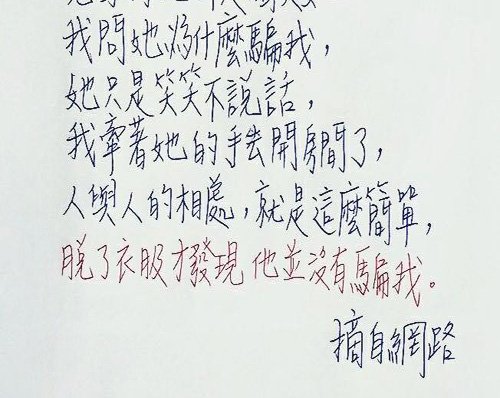 我問她為什麼騙我，
她只是笑笑不說話，
我牽著她的手去開房間了，
人與人的相處，就是這麼簡單，
脫了衣服才發現他並沒有騙我。
摘自網路